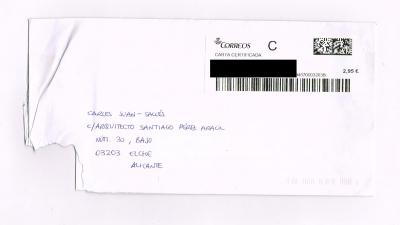 CORREOS
C
CARTA CERTIFICADA
2,95 €
CARLOS JUAN-
C/ARQUITECTO SANTIAGO PÉREZ ARACIL
NÚM. 30, BAJO
03203 ELCHE
ALICANTE